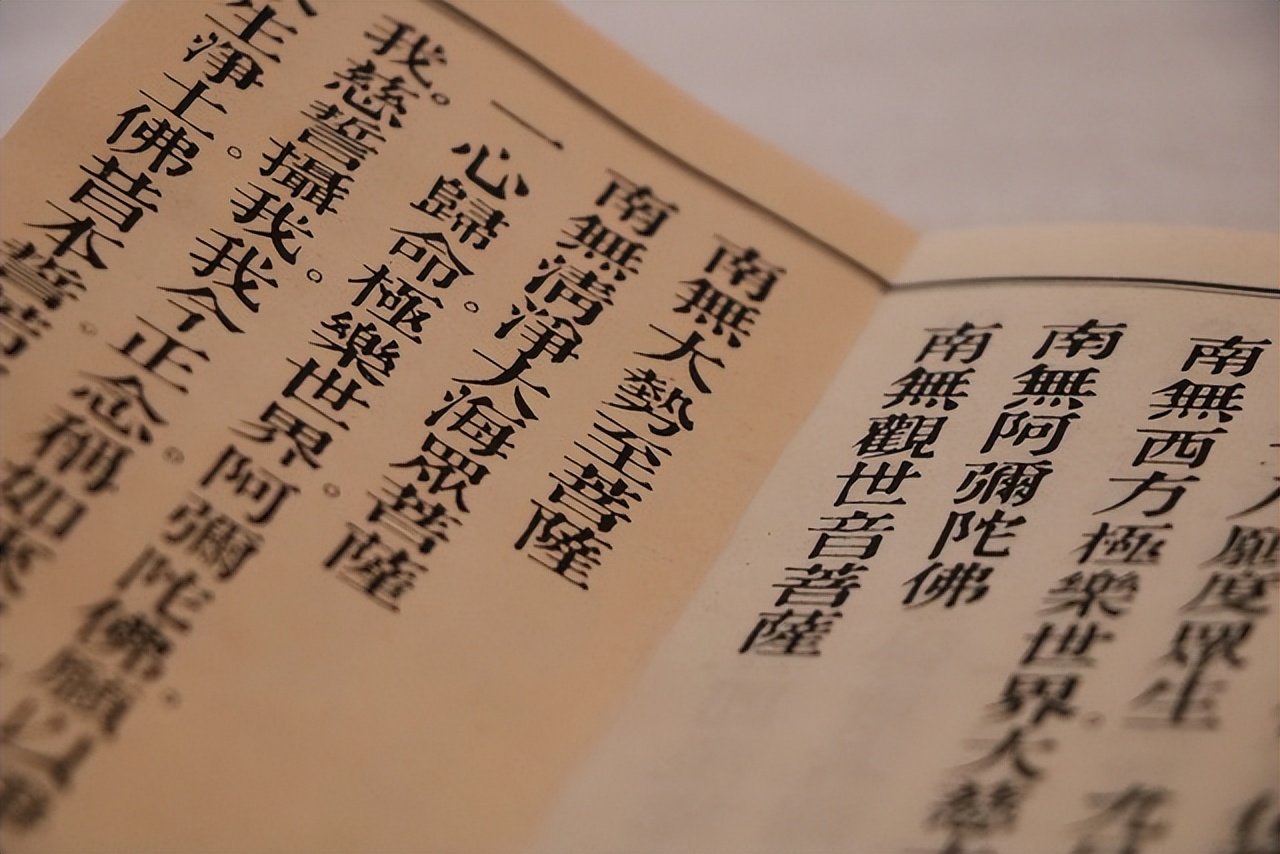 願度眾生　九
南無西方極樂世界。大慈
南無阿彌陀佛
南無觀世音菩薩
南無大勢至菩薩
南無清淨大海眾菩薩
一心歸命。極樂世界。阿彌陀佛。願以
我。慈誓攝我。我今正念。稱如來
生淨土。佛昔本誓。若